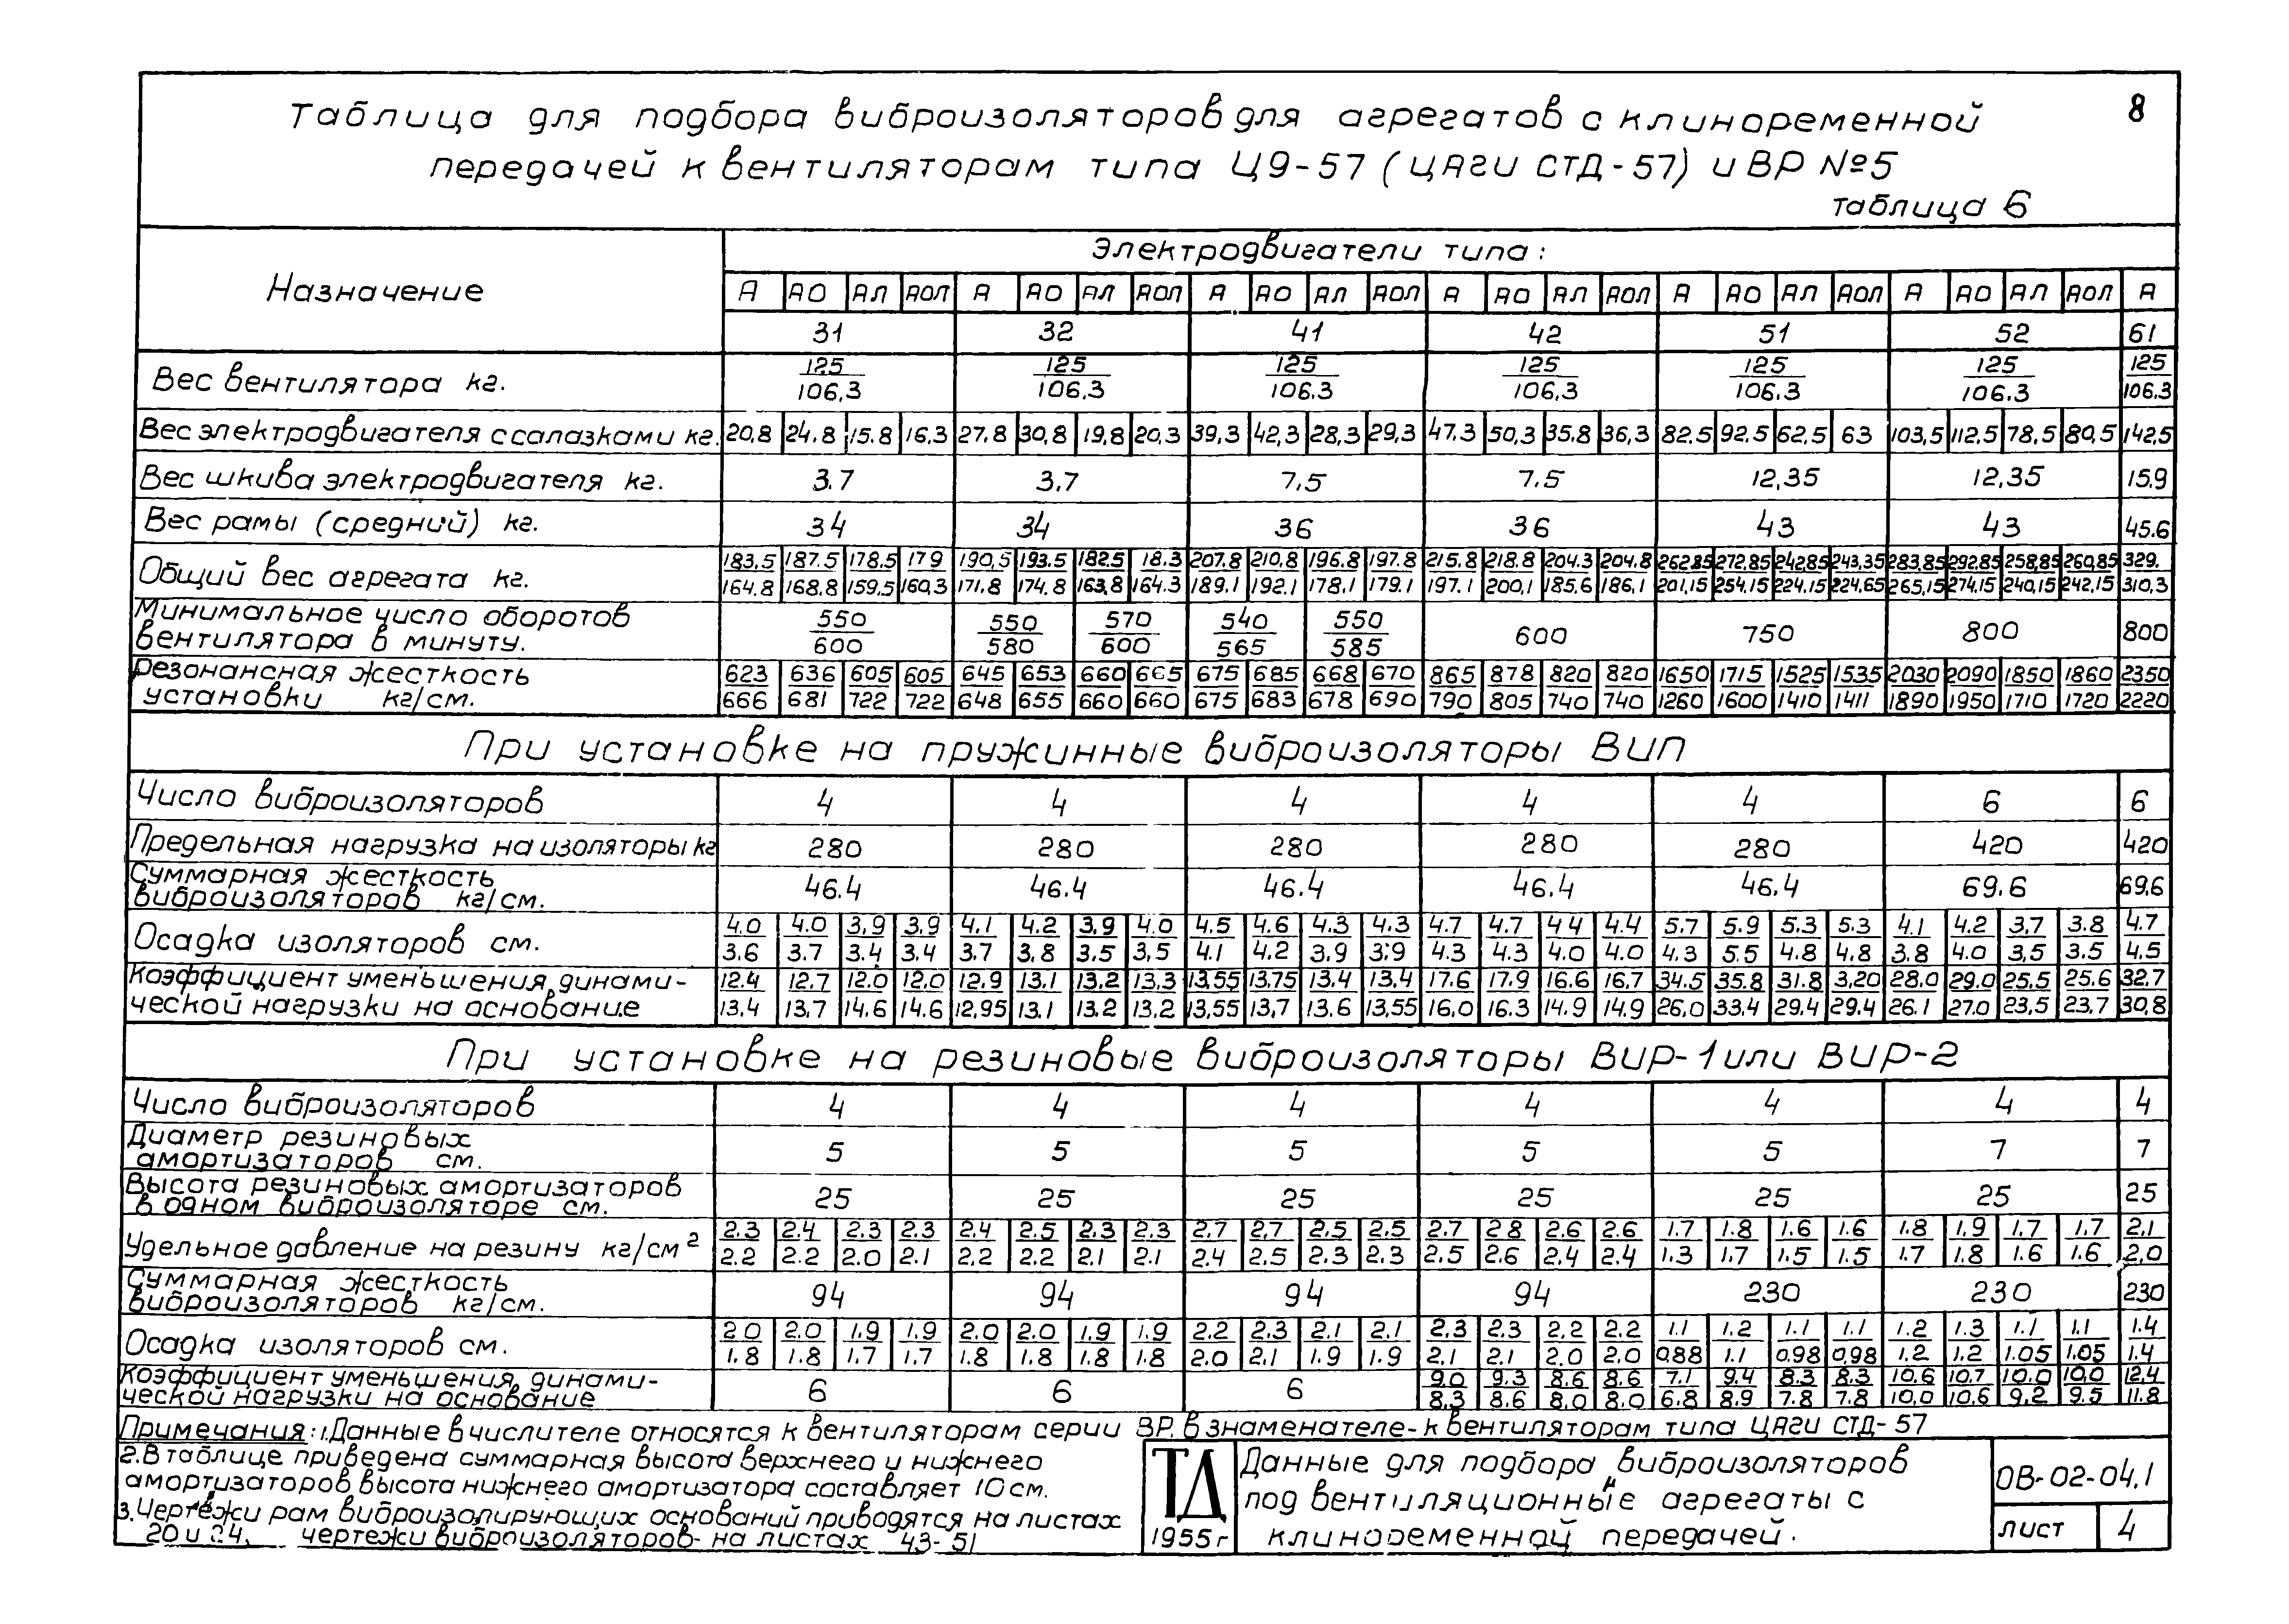 8
Таблица для подбора виброизоляторов для агрегатов с клиноременной
передачей к вентиляторам типа Ц9-57 (ЦАГИ СТД-57) и ВР №5
таблица 6
Назначение
Электродвигатели типа:
А АО АЛ АОЛ А АО АЛ АОЛ А АО АЛ АОЛ А АО АЛ АОЛ А АО АЛ АОЛ А АО АЛ АОЛ А
31 32 41 42 51 52 61
Вес вентилятора кг.
125 125 125 125 125 125 125
106.3 106.3 106.3 106.3 106.3 106.3 106.3
Вес электродвигателя с салазками кг. 20,8 24.8 15.8 16.3 27.8 30,8 19,8 20,3 39,3 42,3 28,3 29,3 47.3 50,3 35.8 36,3 82.5 92.5 62,5 63 103,5 112.5 78,5 80,5 142,5
Вес шкива электродвигателя кг. 3.7 3.7 7.5 7.5 12,35 12,35 15.9
Вес рамы (средний) кг. 34 34 36 36 43 43 45.6
Общий вес агрегата кг.
183,5 187.5 178.5 179 190,5 193.5 182.5 18.3 207.8 210,8 196.8 197.8 215.8 218.8 204.3 204.8 262.85 272,85 242.85 243,35 283,85 292.85 258,85 260,85 329.
164.8 168.8 159,5 160,3 171.8 174.8 163.8 164.3 189.1 192.1 178.1 179.1 197.1 200,1 185.6 186,1 201,15 254.15 224.15 224.65 265,15 274,15 240,15 242,15 310,3
Минимальное число оборотов
вентилятора в минуту.
550 550 570 540 550 600 750 800 800
600 580 600 565 585
Резонансная жесткость
установки кг/см.
623 636 605 605 645 653 660 665 675 685 668 670 865 878 820 820 1650 1715 1525 1535 2030 2090 1850 1860 2350
666 681 722 722 648 655 660 660 675 683 678 690 790 805 740 740 1260 1600 1410 1411 1890 1950 1710 1720 2220
При установке на пружинные виброизоляторы ВИП
Число виброизоляторов 4 4 4 4 4 6 6
Предельная нагрузка на изоляторы кг 280 280 280 280 280 420 420
Суммарная жесткость
виброизоляторов кг/см. 46.4 46.4 46.4 46.4 46.4 69.6 69.6
Осадка изоляторов см.
4.0 4.0 3,9 3,9 4.1 4.2 3,9 4.0 4.5 4.6 4.3 4.3 4.7 4.7 4 4 4.4 5.7 5.9 5.3 5.3 4.1 4.2 3,7 3.8 4.7
3.6 3.7 3.4 3.4 3.7 3,8 3.5 3,5 4.1 4.2 3,9 3.9 4.3 4.3 4.0 4.0 4.3 5.5 4.8 4.8 3.8 4.0 3,5 3.5 4.5
Коэффициент уменьшения динами-
ческой нагрузки на основание
12.4 12.7 12.0 12.0 12.9 13.1 13.2 13,3 13,55 13,75 13.4 13.4 17.6 17.9 16.6 16,7 34.5 35.8 31.8 3,20 28.0 29.0 25.5 25.6 32.7
13.4 13.7 14.6 14.6 12,95 13.1 13.2 13.2 13,55 13,7 13.6 13,55 16,0 16.3 14.9 14,9 26,0 33.4 29,4 29.4 26.1 27.0 23,5 23.7 30.8
При установке на резиновые виброизоляторы ВИР-1 или ВИР-2
Число виброизоляторов 4 4 4 4 4 4 4
Диаметр резиновых
амортизаторов см. 5 5 5 5 5 7 7
Высота резиновых амортизаторов
в одном виброизоляторе см. 25 25 25 25 25 25 25
Удельное давление на резину кг/см²
2.3 2.4 2.3 2.3 2.4 2.5 2.3 2.3 2.7 2,7 2.5 2.5 2.7 2.8 2.6 2.6 1.7 1.8 1.6 1.6 1.8 1.9 1.7 1.7 2.1
2.2 2.2 2.0 2.1 2,2 2.2 2.1 2.1 2.4 2,5 2.3 2.3 2.5 2.6 2.4 2.4 1.3 1.7 1.5 1.5 1.7 1.8 1.6 1.6 2.0
Суммарная жесткость
виброизоляторов кг/см. 94 94 94 94 230 230 230
Осадка изоляторов см.
2.0 2.0 1.9 1.9 2.0 2.0 1.9 1.9 2.2 2.3 2.1 2.1 2.3 2.3 2.2 2.2 1.1 1.2 1.1 1.1 1.2 1.3 1.1 1.1 1.4
1.8 1.8 1.7 1.7 1.8 1.8 1.8 1.8 2.0 2.1 1.9 1.9 2.1 2.1 2.0 2.0 0,88 1.1 0.98 0,98 1.2 1.2 1.05 1.05 1.4
Коэффициент уменьшения динами-
ческой нагрузки на основание 6 6 6
9.0 9.3 8.6 8.6 7.1 9.4 8.3 8.3 10.6 10.7 10.0 10.0 12.4
8.3 8.6 8.0 8.0 6.8 8.9 7.8 7.8 10,0 10.6 9.2 9.5 11.8
Примечания: 1.Данные в числителе относятся к вентиляторам серии ВР, в знаменателе- к вентиляторам типа ЦАГИ СТД-57
2.В таблице приведена суммарная высота верхнего и нижнего
амортизаторов высота нижнего амортизатора составляет 10 см.
3.Чертежи рам виброизолирующих оснований приводятся на листах
20 и 24, чертежи виброизоляторов- на листах 43-51
ТД
1955 г
Данные для подбора виброизоляторов
под вентиляционные агрегаты с
клиноременной передачей.
ОВ-02-04.1
лист 4